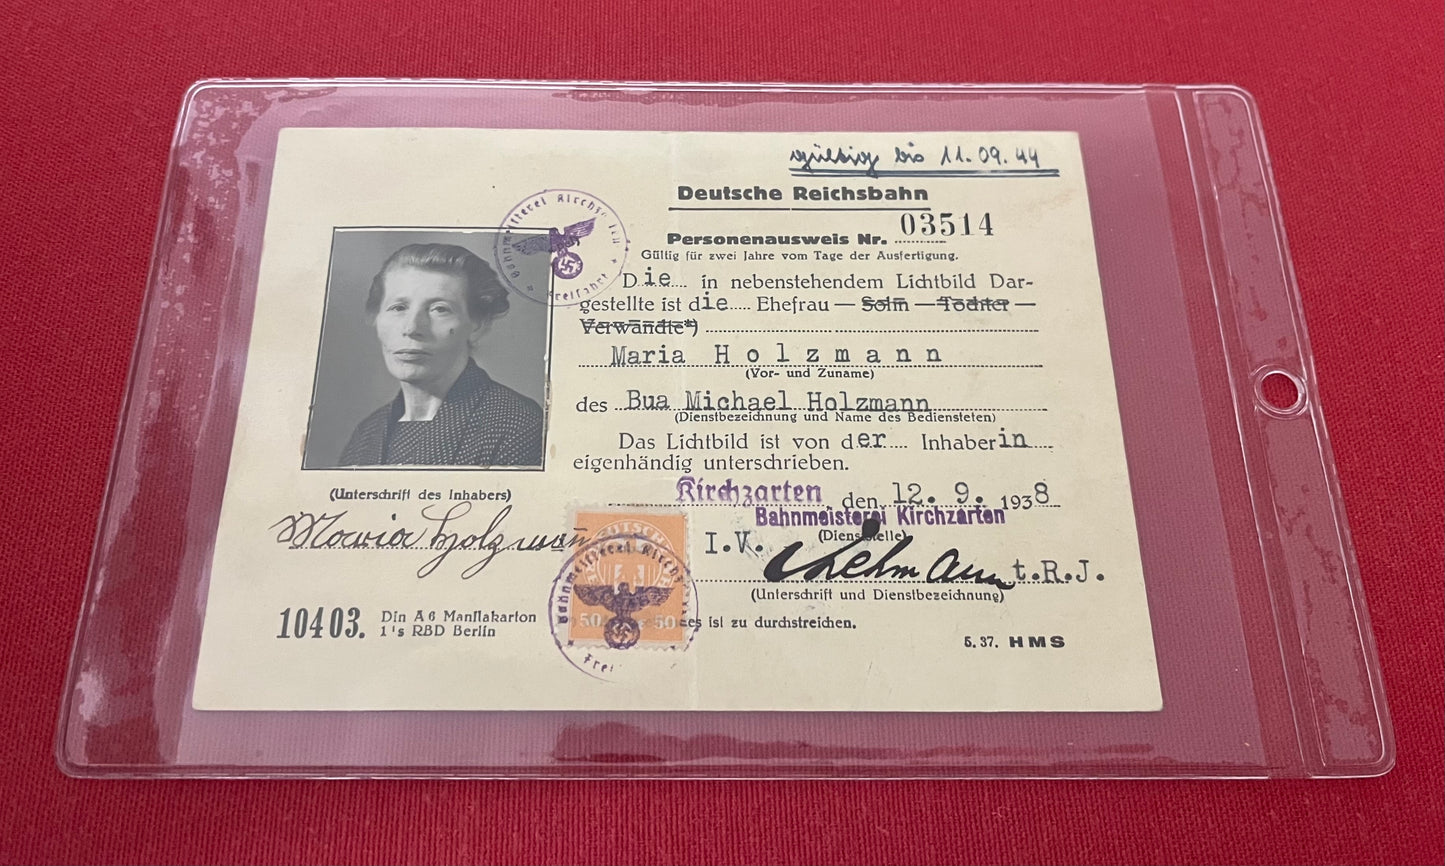 gültig bis 11.09.44
Deutsche Reichsbahn
Personenausweis Nr. 03514
Gültig für zwei Jahre vom Tage der Ausfertigung.
Die in nebenstehendem Lichtbild Dar-
gestellte ist die Ehefrau — Sohn — Tochter —
Verwandte*)
Maria Holzmann
(Vor- und Zuname)
des Bua Michael Holzmann
(Dienstbezeichnung und Name des Bediensteten)
Das Lichtbild ist von der Inhaberin
eigenhändig unterschrieben.
Kirchzarten, den 12. 9. 1938
Bahnmeisterei Kirchzarten
(Dienststelle)
I.V. Lehmann t.R.J.
(Unterschrift und Dienstbezeichnung)
es ist zu durchstreichen.
5. 37. HMS
Bahnmeisterei Kirchzarten
Freifahrt
(Unterschrift des Inhabers)
Maria Holzmann
10403. Din A6 Manilakarton
1's RBD Berlin
DEUTSCHE
50 50
Bahnmeisterei Kirchz
Frei